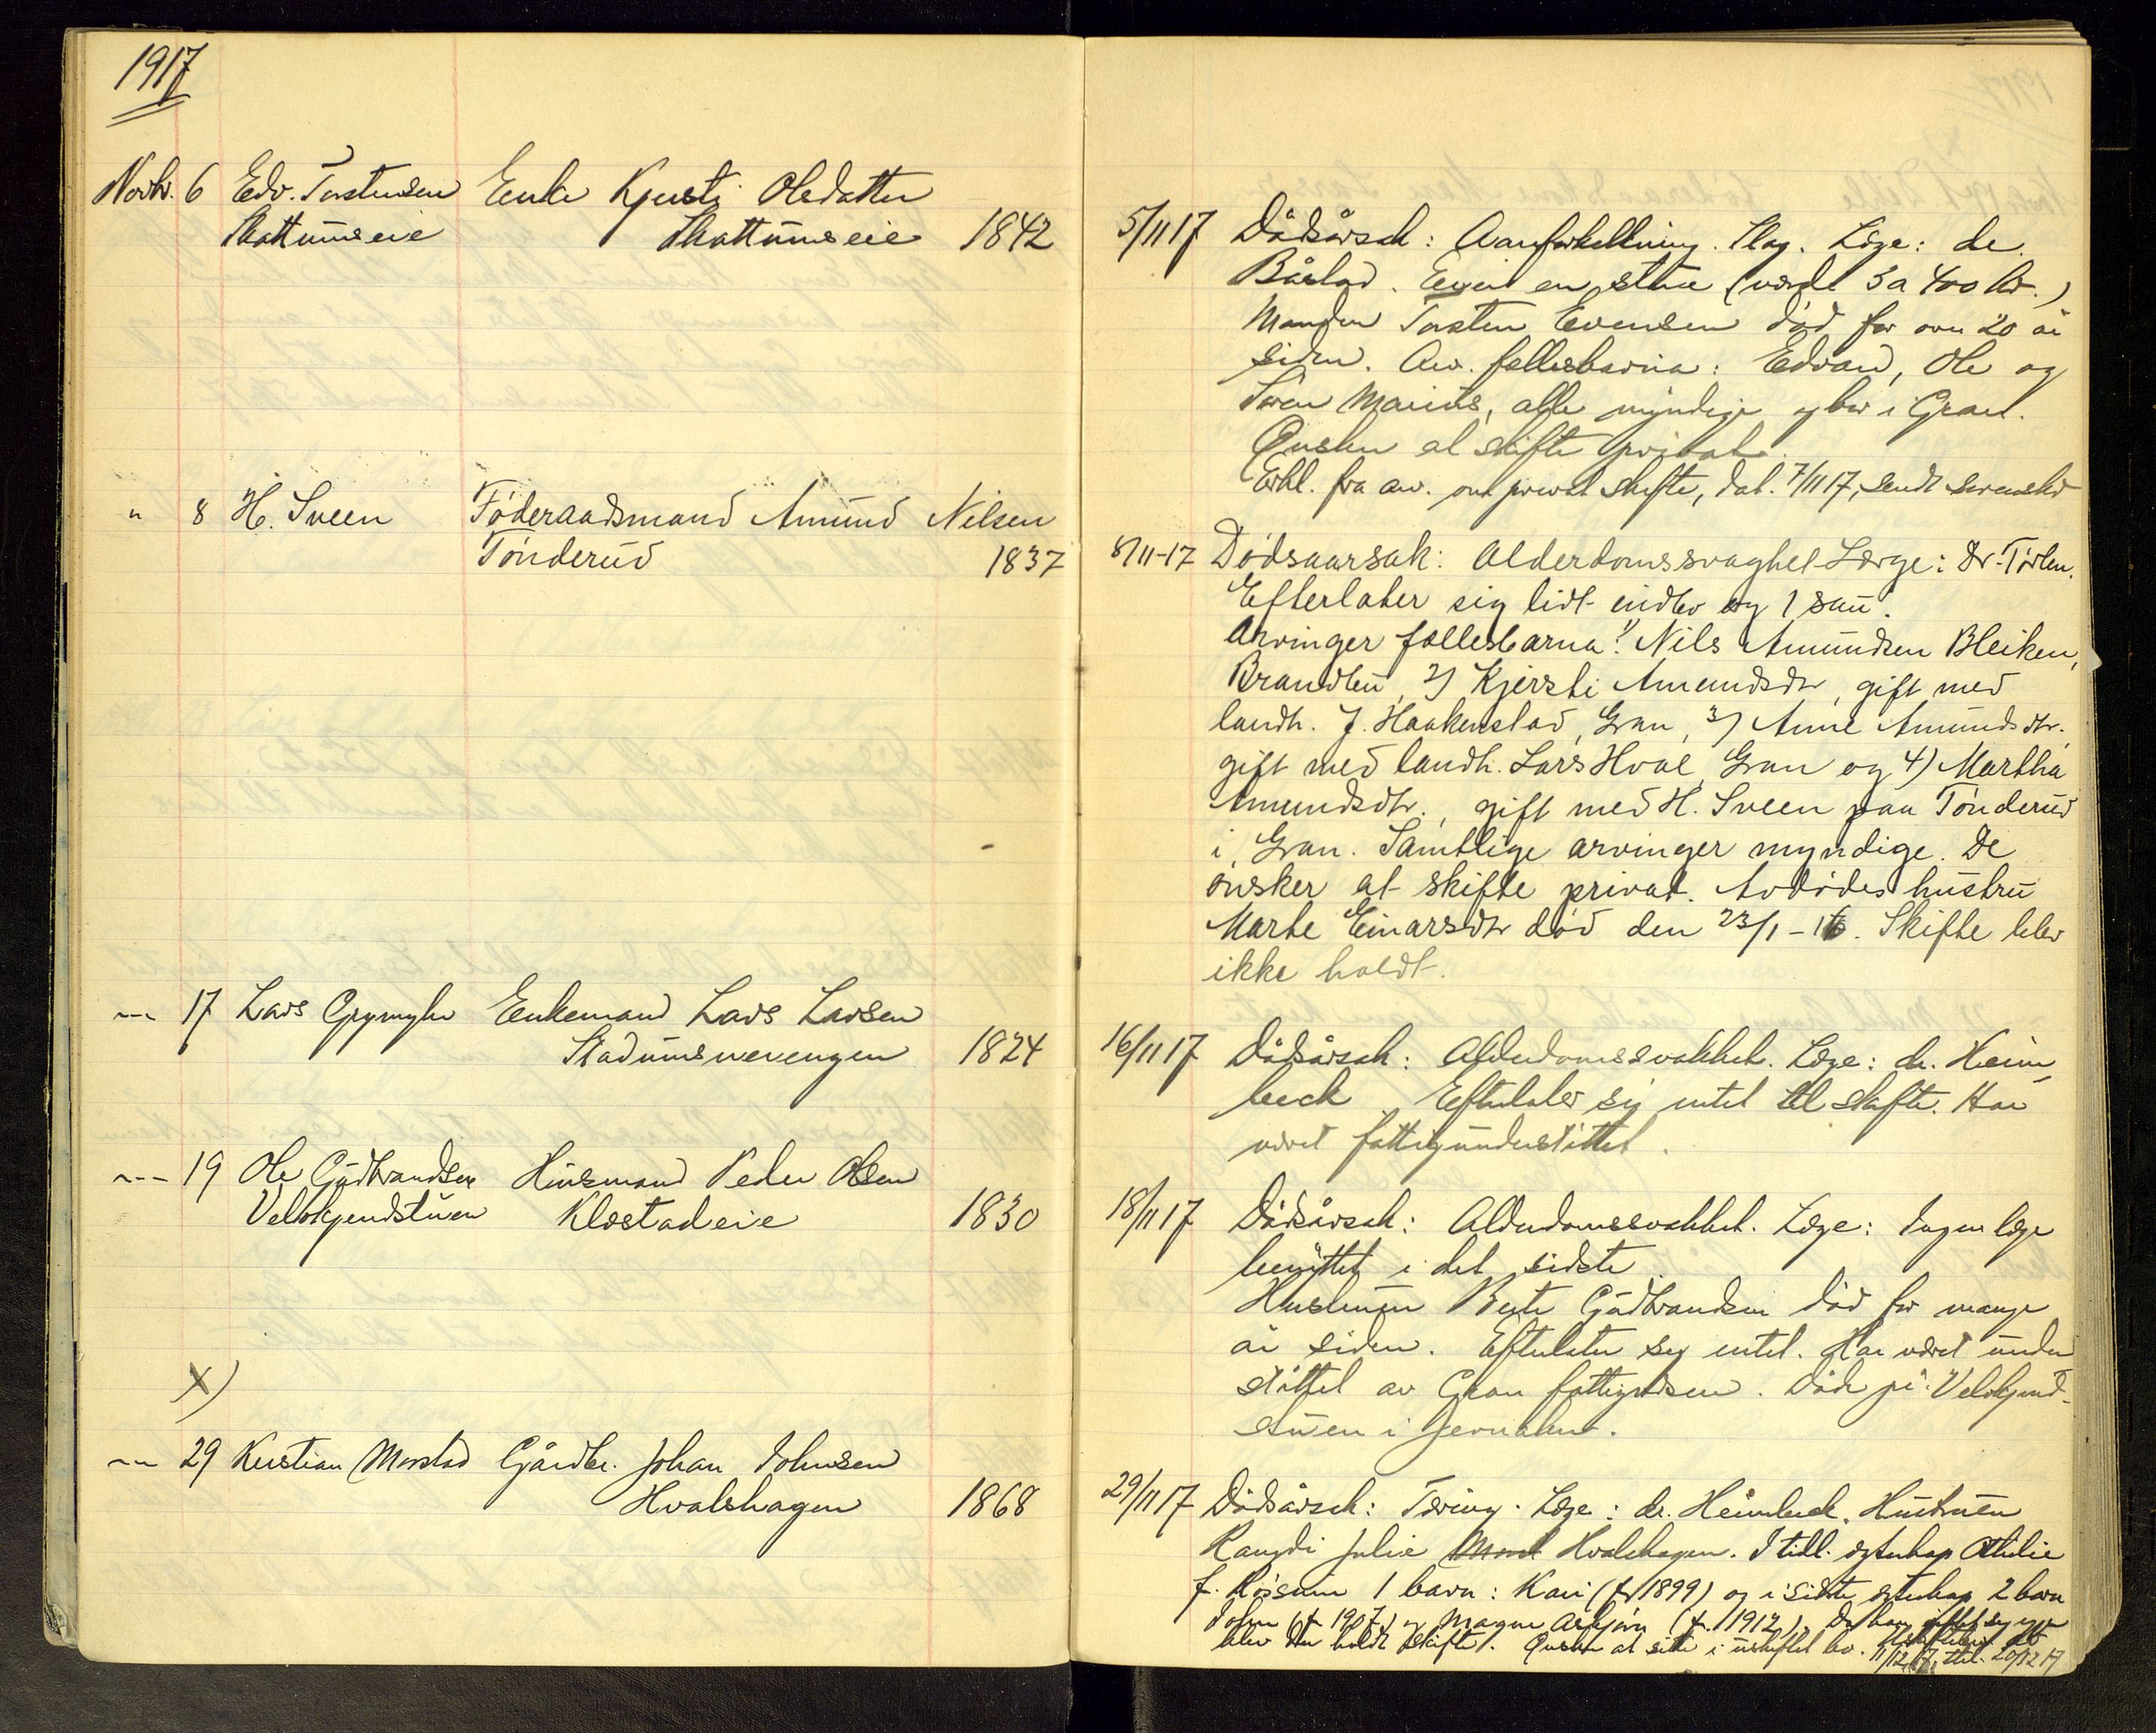 1917
Novbr. 6 Edv. Torstensen Enke Kjersti Olsdatter
Skattumseie Skattumseie 1842
5/11 17 Dødsårsak: Aareforkalkning. Slag. Læge: dr.
Bårlad. Eier en stue (værdt 3 a 400 kr.)
Manden Torsten Evensen død for over 20 år
siden. Arv. fellesbarna: Edvard, Ole og
Søren Marius, alle myndige og bor i Gran.
Ønsker at skifte privat.
Erkl. fra arv. om privat skifte, dat. 7/11 17, sendt sorenskr.
" 8 H. Sveen Föderaadsmand Amund Nilsen
Tönderud 1837
8/11-17 Dødsaarsak: Alderdomssvaghet Læge: Dr.
Efterlater sig lidt indbo og 1 sau.
Arvinger fællesbarna: 1) Nils Amundsen Bleiken,
Brandbu, 2) Kjersti Amundsdtr, gift med
landh. J. Haakenstad, Gran, 3) Anne Amundsdtr.,
gift med landh. Lars Hval, Gran og 4) Martha
Amundsdtr., gift med H. Sveen paa Tönderud
i Gran. Samtlige arvinger myndige. De
önsker at skifte privat. Avdödes hustru
Marte Einarsdtr död den 23/1-16. Skifte blev
ikke holdt.
--- 17 Lars Grymyhr Enkemand Lars Larsen
Stadumsvevengen 1824
16/11 17 Dødsårsak: Alderdomssvakhet. Læge: dr. Heim-
beck Efterlater sig intet til skifte. Har
været fattigunderstöttet.
--- 19 Ole Gudbrandsen Husmand Peder Olsen
Velokjendstuen Klæstadeie 1830
18/11 17 Dødsårsak: Alderdomssvakhet. Læge: Ingen læge
benyttet i det sidste.
Hustruen Berte Gudbrandsen död for mange
år siden. Efterlater sig intet. Har været under
stöttet av Gran fattigvæsen. Döde på Velokjend-
stuen i Jevnaker.
X)
--- 29 Kristian Morstad Gårdbr. Johan Johnsen
Hvalshagen 1868
29/11 17 Dødsårsak: Tæring. Læge: dr. Heimbeck. Hustruen
Rangdi Julie Hvalshagen. I tidl. egteskap Othilie
f. Röisum 1 barn: Kari (f. 1899) og i sidste egteskap 2 barn
John (f. 1907) og Magne Asbjörn (f. 1912). Da han giftet sig igjen
blev der holdt skifte. Ønsker at sitte i uskiftet bo.